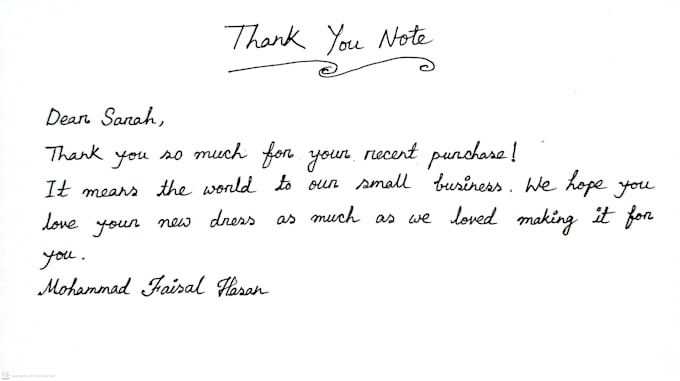 Thank You Note
Dear Sarah,
Thank you so much for your recent purchase!
It means the world to our small business. We hope you
love your new dress as much as we loved making it for
you.
Mohammad Faisal Hasan